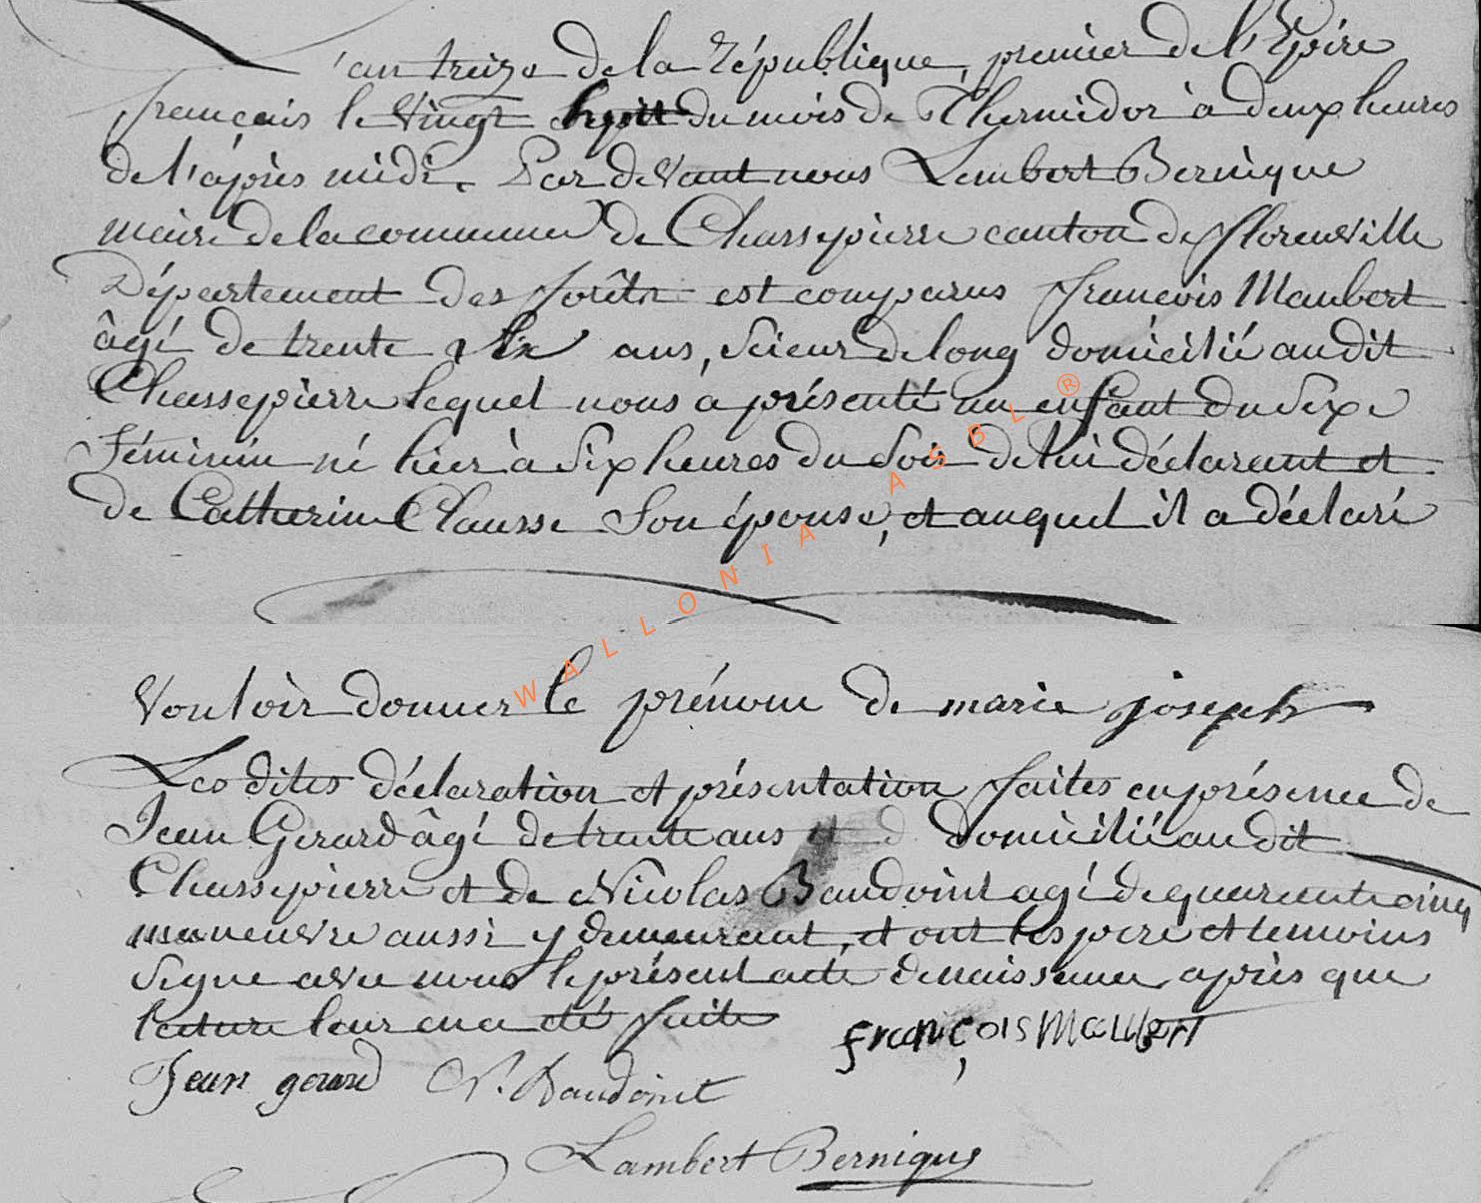 L'an treize de la République, premier de l'Epire
français le vingt huit du mois de Thermidor à deux heures
de l'après midi. Par devant nous Lembert Bernique
maire de la commune de Chassepierre canton de florenville
Département des forêts est comparus francois Maubert
âgé de trente six ans, scieur de long domicilié audit
Chassepierre lequel nous a présenté un enfant du sexe
féminin né hier à six heures du soir de lui déclarant et
de Catherine Clausse son épouse, et auquel il a déclaré
vouloir donner le prénom de marie joseph
Les dites déclaration et présentation faites en présence de
Jean Gerard âgé de trente ans domicilié audit
Chassepierre et de Nicolas Baudoint agé de quarente cinq
maneuvre aussi y demeurant, et ont les pere et temoins
signe avec nous le présent acte de naissance après que
lecture leur en a été faite françois Maubert
Jean gerard N. Baudoint
Lambert Bernique
WALLONIA ASBL ®